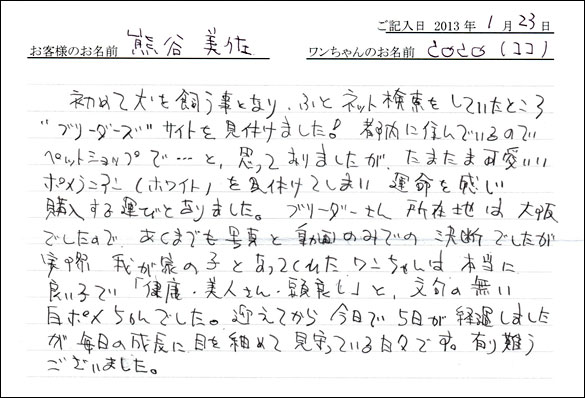 ご記入日 2013 年 1 月 23 日
お客様のお名前 熊谷 美佐 ワンちゃんのお名前 coco (ココ)
初めて犬を飼う事となり、ふと ネット検索をしていたところ
"ブリーダーズ" サイトを見付けました! 都内に住んでいるので
ペットショップで…と、思っておりましたが、たまたま可愛いい
ポメラニアン (ホワイト) を見付けてしまい 運命を感じ
購入する運びとなりました。ブリーダーさん 所在地は 大阪
でしたので、あくまでも 写真と 動画のみでの 決断でしたが
実際 我が家の子となってくれた ワンちゃんは 本当に
良い子で 「健康・美人さん・頭良し」と、文句の無い
白ポメちゃんでした。迎えてから 今日で 5日が 経過しました
が 毎日の成長に 目を細めて 見守っている日々です。有り難う
ございました。